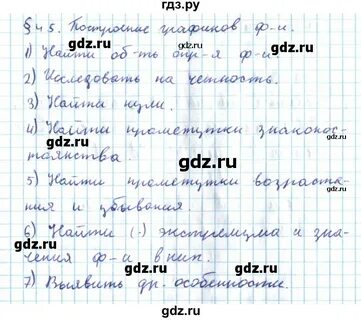 гдз.ру
§45. Построение графиков ф-и.
1) Найти об-ть опр-я ф-и.
2) Исследовать на четность.
3) Найти нули.
4) Найти промежутки знакопос-
тоянства.
5) Найти промежутки возраста-
ния и убывания.
6) Найти (·) экстремума и зна-
чения ф-и в них.
7) Выявить др. особенности.
гдз.ру